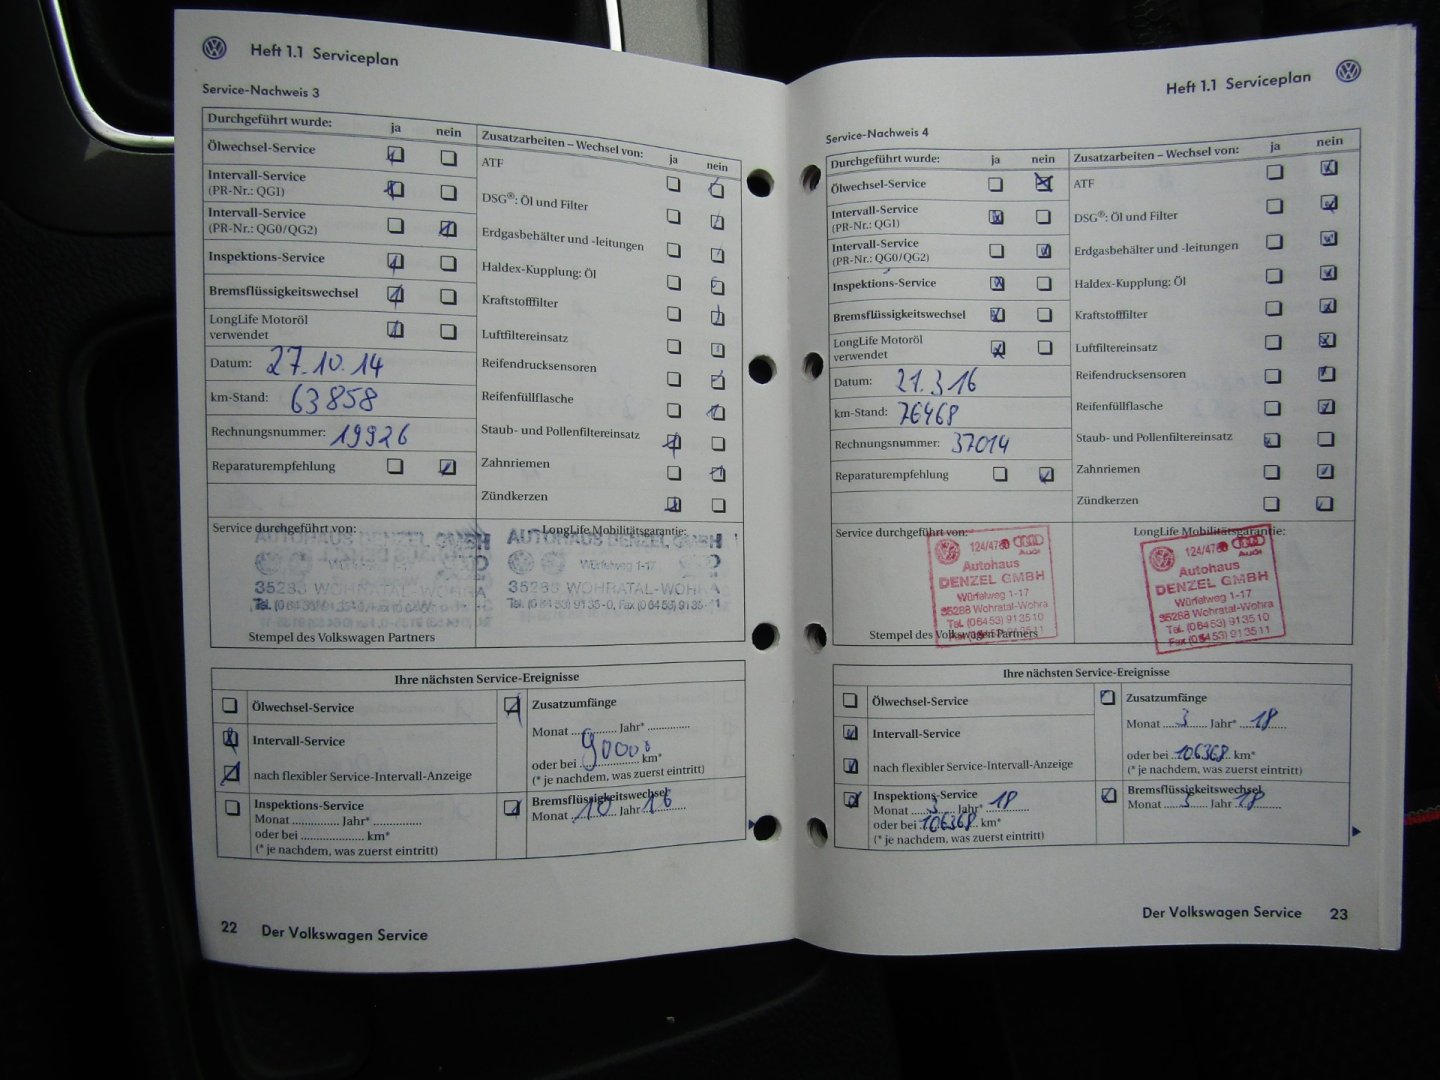 Heft 1.1 Serviceplan
Service-Nachweis 3
Durchgeführt wurde: ja nein
Ölwechsel-Service
Intervall-Service
(PR-Nr.: QG1)
Intervall-Service
(PR-Nr.: QG0/QG2)
Inspektions-Service
Bremsflüssigkeitswechsel
LongLife Motoröl
verwendet
Datum: 27.10.14
km-Stand: 63858
Rechnungsnummer: 19926
Reparaturempfehlung
Zusatzarbeiten – Wechsel von: ja nein
ATF
DSG®: Öl und Filter
Erdgasbehälter und -leitungen
Haldex-Kupplung: Öl
Kraftstofffilter
Luftfiltereinsatz
Reifendrucksensoren
Reifenfüllflasche
Staub- und Pollenfiltereinsatz
Zahnriemen
Zündkerzen
Service durchgeführt von:
AUTOHAUS DENZEL GMBH
35288 WOHRATAL-WOHRA
Stempel des Volkswagen Partners
LongLife Mobilitätsgarantie:
AUTOHAUS DENZEL GMBH
Würfelweg 1-17
35288 WOHRATAL-WOHRA
Tel. (0 64 53) 91 35-0, Fax (0 64 53) 91 35-11
Ihre nächsten Service-Ereignisse
Ölwechsel-Service
Intervall-Service
nach flexibler Service-Intervall-Anzeige
Inspektions-Service
Monat ........ Jahr* ..............
oder bei .................. km*
(* je nachdem, was zuerst eintritt)
Zusatzumfänge
Monat ........ Jahr* ..............
oder bei 90000 km*
(* je nachdem, was zuerst eintritt)
Bremsflüssigkeitswechsel
Monat 10 Jahr 16
22 Der Volkswagen Service
Heft 1.1 Serviceplan
Service-Nachweis 4
Durchgeführt wurde: ja nein
Ölwechsel-Service
Intervall-Service
(PR-Nr.: QG1)
Intervall-Service
(PR-Nr.: QG0/QG2)
Inspektions-Service
Bremsflüssigkeitswechsel
LongLife Motoröl
verwendet
Datum: 21.3.16
km-Stand: 76468
Rechnungsnummer: 37014
Reparaturempfehlung
Zusatzarbeiten – Wechsel von: ja nein
ATF
DSG®: Öl und Filter
Erdgasbehälter und -leitungen
Haldex-Kupplung: Öl
Kraftstofffilter
Luftfiltereinsatz
Reifendrucksensoren
Reifenfüllflasche
Staub- und Pollenfiltereinsatz
Zahnriemen
Zündkerzen
Service durchgeführt von:
Audi
Autohaus
DENZEL GMBH
Würfelweg 1-17
35288 Wohratal-Wohra
Tel. (06453) 913510
Stempel des Volkswagen Partners
LongLife Mobilitätsgarantie:
Audi
Autohaus
DENZEL GMBH
Würfelweg 1-17
35288 Wohratal-Wohra
Tel. (06453) 913510
Fax (06453) 913511
Ihre nächsten Service-Ereignisse
Ölwechsel-Service
Intervall-Service
nach flexibler Service-Intervall-Anzeige
Inspektions-Service
Monat 3 Jahr* 18
oder bei 106368 km*
(* je nachdem, was zuerst eintritt)
Zusatzumfänge
Monat 3 Jahr* 18
oder bei 106368 km*
(* je nachdem, was zuerst eintritt)
Bremsflüssigkeitswechsel
Monat 3 Jahr 18
Der Volkswagen Service 23